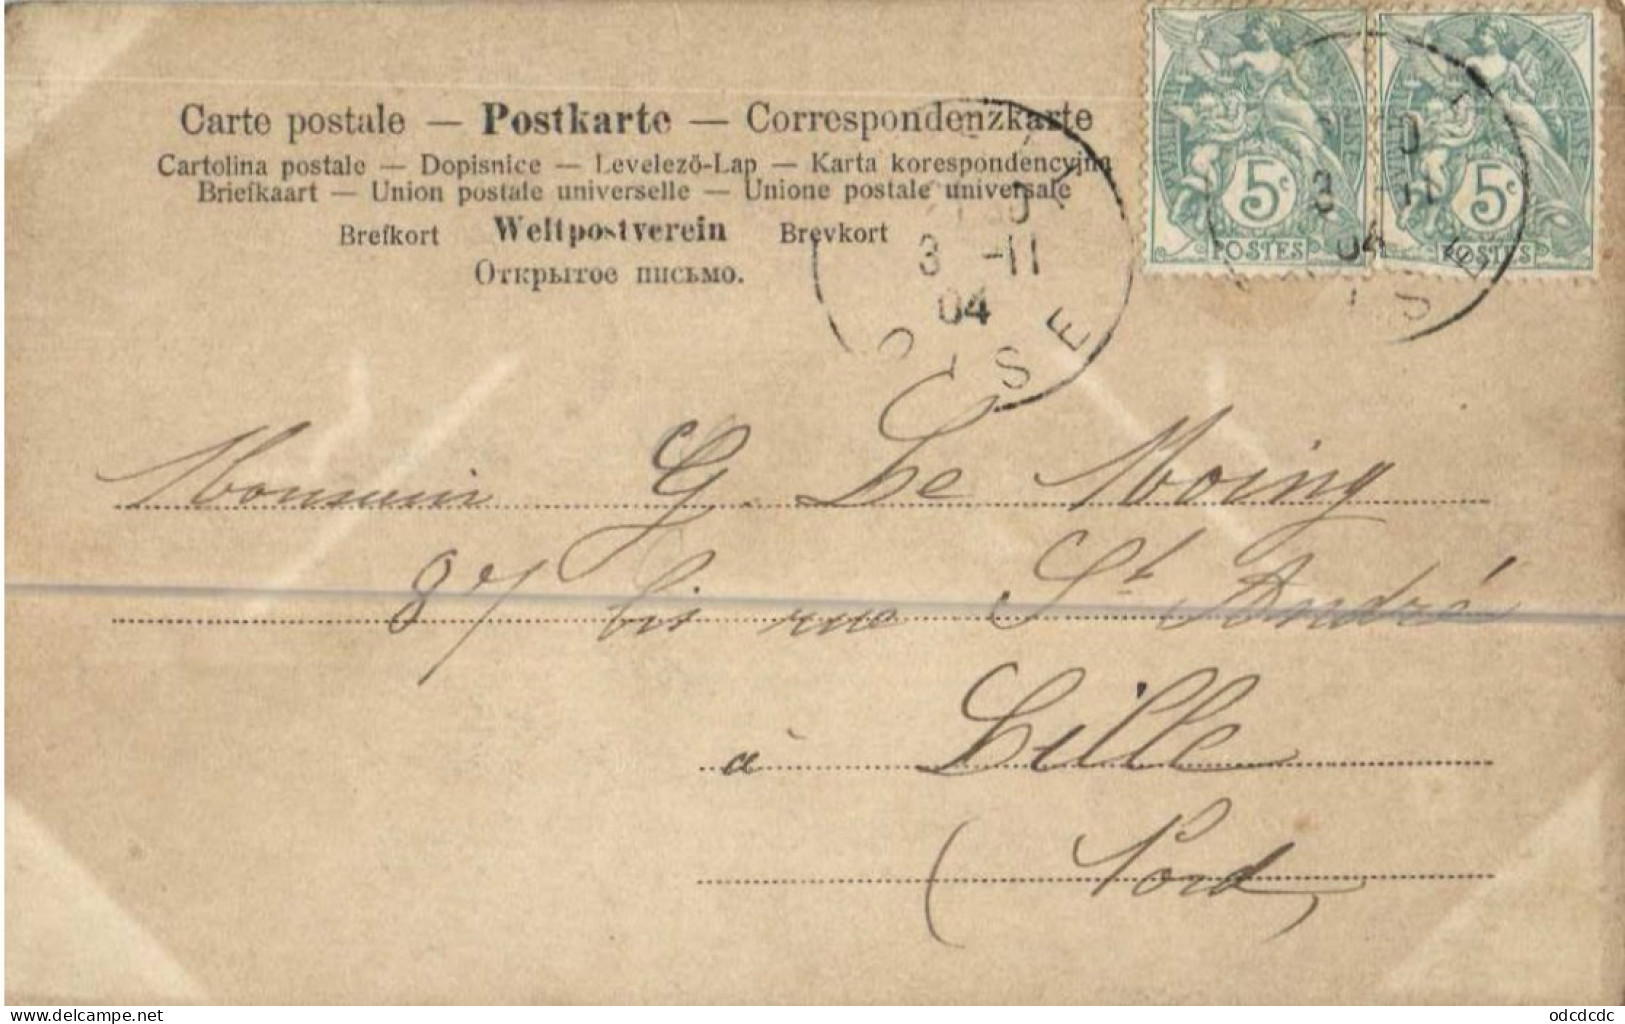 Carte postale — Postkarte — Correspondenzkarte
Cartolina postale — Dopisnice — Levelező-Lap — Karta korespondencyjna
Briefkaart — Union postale universelle — Unione postale universale
Brefkort Weltpostverein Brevkort
Открытое письмо.
5c
POSTES
5c
POSTES
3 -11
04
OISE
3 -11
04
Monsieur G. Le Moing
87 bis rue St André
à Lille
(Nord)
delcampe.net
odcdcdc